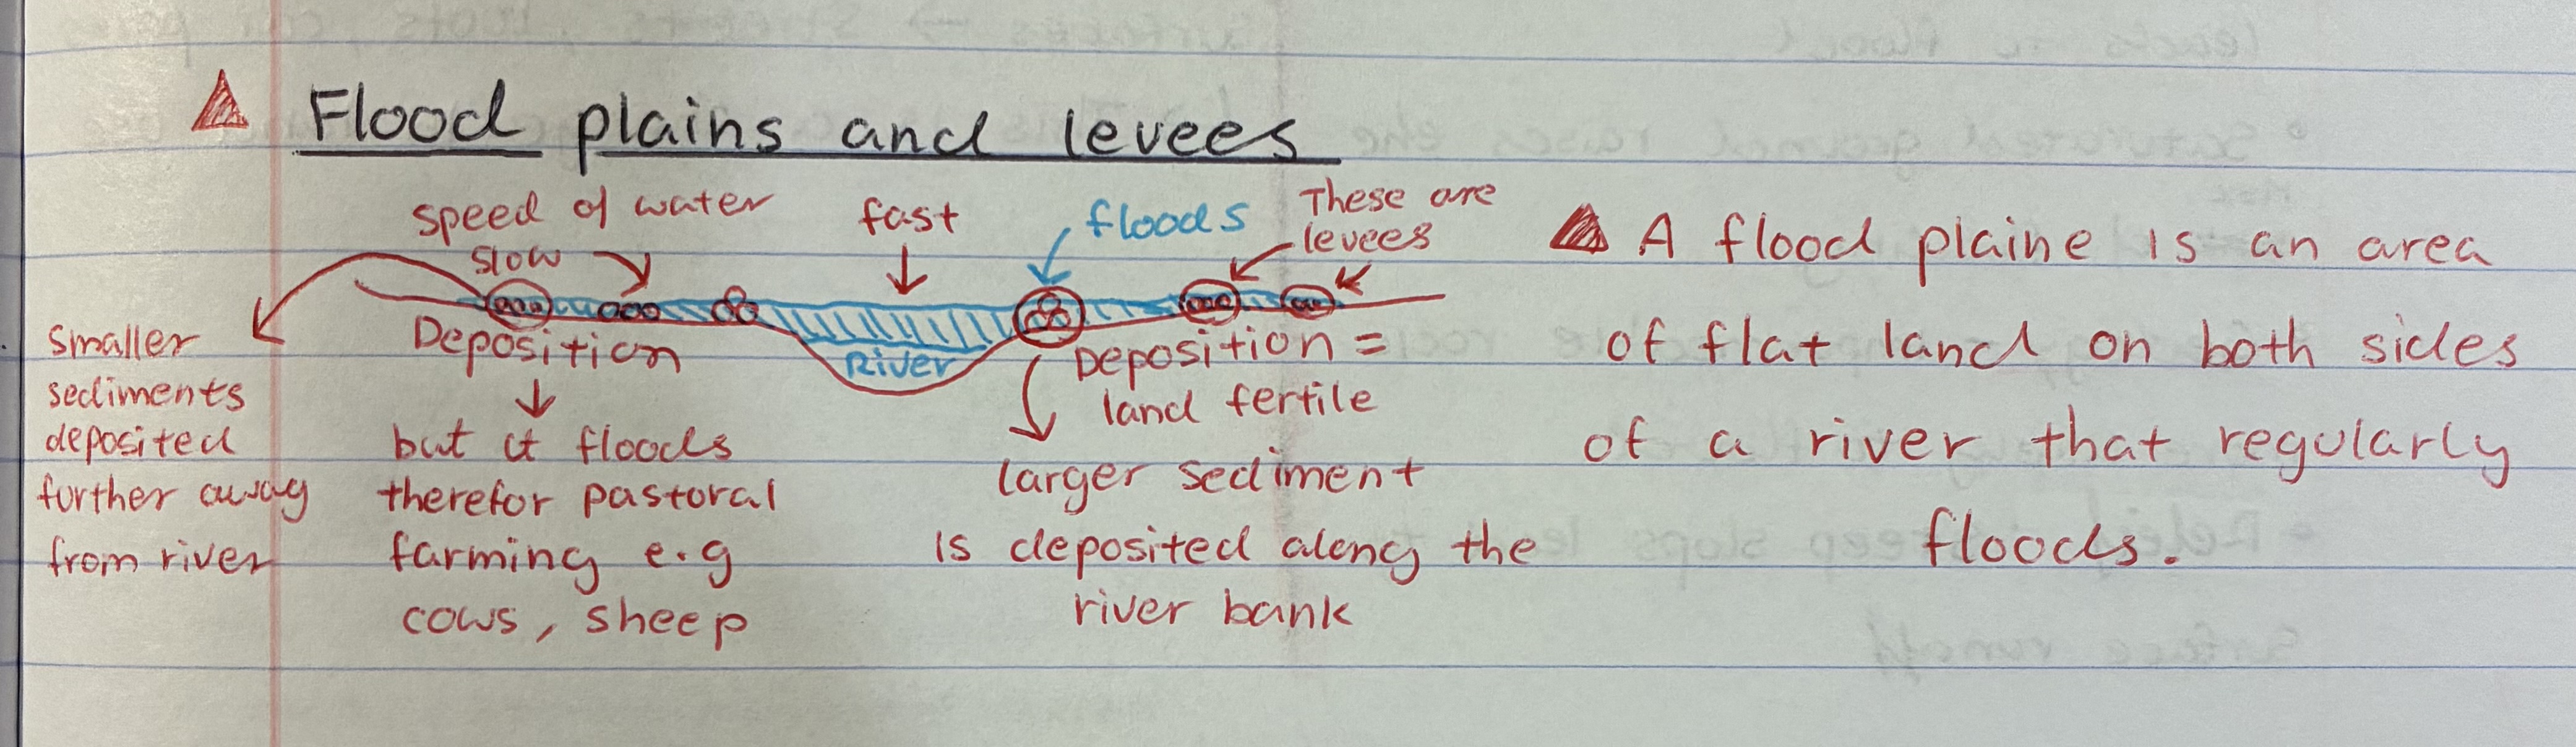 Flood plains and levees
speed of water
slow
fast
floods
These are
levees
Deposition
River
Deposition =
land fertile
smaller
sediments
deposited
further away
from river
but it floods
therefor pastoral
farming e.g
cows, sheep
larger sediment
is deposited along the
river bank
A flood plaine is an area
of flat land on both sides
of a river that regularly
floods.